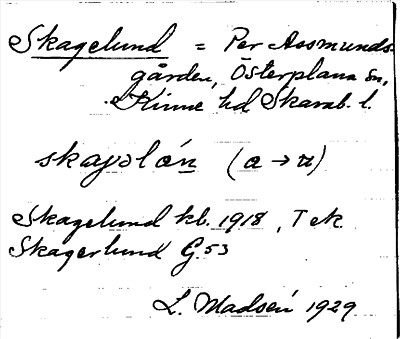 Skagelund = Per Assmunds-
gården, Österplana sn,
Kinne hd Skarab. l.
skagəlán (a → u)
Skagelund kb. 1918, T ek.
Skagerlund G. 53
L. Madsén 1929